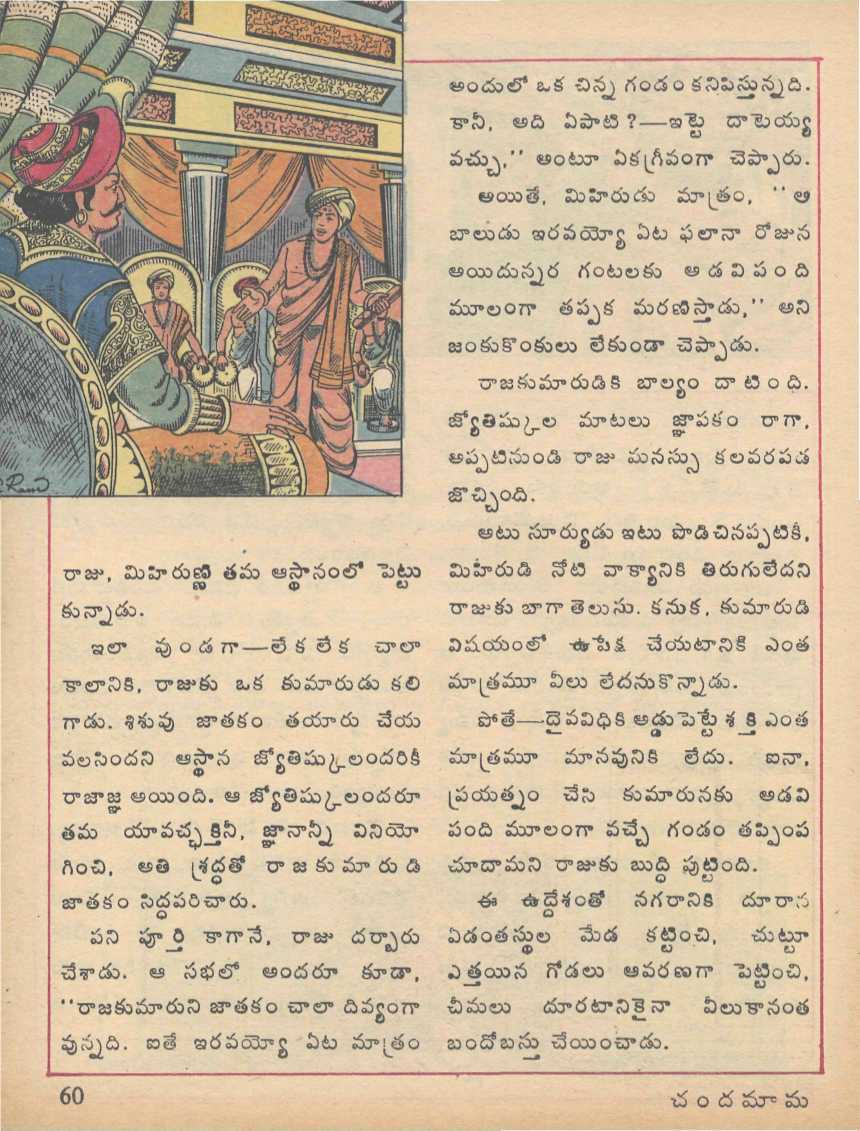 రాజు, మిహిరుణ్ణి తమ ఆస్థానంలో పెట్టు
కున్నాడు.
ఇలా వుండగా—లేకలేక చాలా
కాలానికి, రాజుకు ఒక కుమారుడు కలి
గాడు. శిశువు జాతకం తయారు చేయ
వలసిందని ఆస్థాన జ్యోతిష్కులందరికీ
రాజాజ్ఞ అయింది. ఆ జ్యోతిష్కులందరూ
తమ యావచ్ఛక్తినీ, జ్ఞానాన్నీ వినియో
గించి, అతి శ్రద్ధతో రాజకుమారుడి
జాతకం సిద్ధపరిచారు.
పని పూర్తి కాగానే, రాజు దర్బారు
చేశాడు. ఆ సభలో అందరూ కూడా,
‘‘రాజకుమారుని జాతకం చాలా దివ్యంగా
వున్నది. ఐతే ఇరవయ్యో ఏట మాత్రం
అందులో ఒక చిన్న గండం కనిపిస్తున్నది.
కానీ, అది ఏపాటి?—ఇట్టె దాటెయ్య
వచ్చు,’’ అంటూ ఏకగ్రీవంగా చెప్పారు.
అయితే, మిహిరుడు మాత్రం, ‘‘ఆ
బాలుడు ఇరవయ్యో ఏట ఫలానా రోజున
అయిదున్నర గంటలకు అడవిపంది
మూలంగా తప్పక మరణిస్తాడు,’’ అని
జంకుకొంకులు లేకుండా చెప్పాడు.
రాజకుమారుడికి బాల్యం దాటింది.
జ్యోతిష్కుల మాటలు జ్ఞాపకం రాగా,
అప్పటినుండి రాజు మనస్సు కలవరపడ
జొచ్చింది.
అటు సూర్యుడు ఇటు పొడిచినప్పటికీ,
మిహిరుడి నోటి వాక్యానికి తిరుగులేదని
రాజుకు బాగా తెలుసు. కనుక, కుమారుడి
విషయంలో ఉపేక్ష చేయటానికి ఎంత
మాత్రమూ వీలు లేదనుకొన్నాడు.
పోతే—దైవవిధికి అడ్డుపెట్టే శక్తి ఎంత
మాత్రమూ మానవునికి లేదు. ఐనా,
ప్రయత్నం చేసి కుమారునకు అడవి
పంది మూలంగా వచ్చే గండం తప్పింప
చూదామని రాజుకు బుద్ధి పుట్టింది.
ఈ ఉద్దేశంతో నగరానికి దూరాన
ఏడంతస్థుల మేడ కట్టించి, చుట్టూ
ఎత్తయిన గోడలు ఆవరణగా పెట్టించి,
చీమలు దూరటానికైనా వీలుకానంత
బందోబస్తు చేయించాడు.
60
చందమామ